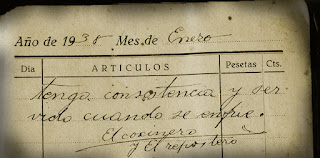 Año de 1938 Mes de Enero
Dia ARTICULOS Pesetas Cts.
tenga consistencia y ser-
virlo cuando se enfrie.
El cocinero
y El repostero